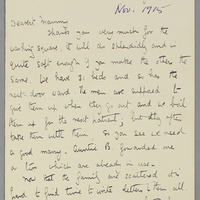 Nov. 1915
Dearest Mummy
Thank you very much for the
washing square it will do splendidly and is
quite soft enough if you make the others the
same. We have 31 beds and so has the
next door ward the men are supposed to
give them up when they go out and we boil
them up for the next patient, but they often
take them with them. So you see we need
a good many. Auntie B. forwarded me
a two which are already in use.
now that the family are scattered it's
hard to find time to write letters to them all.